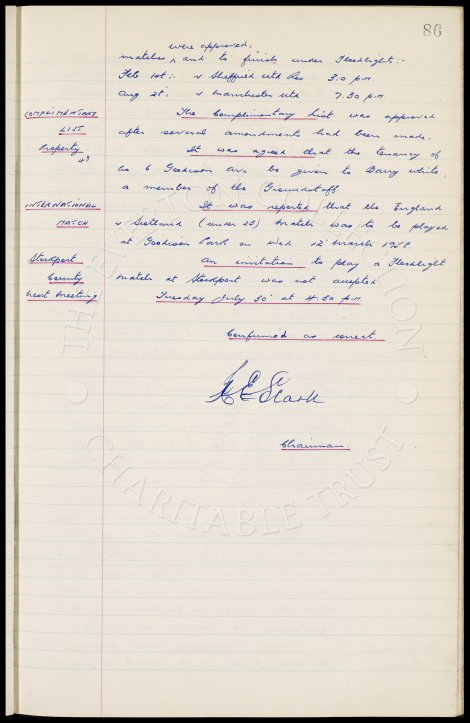 86
were approved,
matches ^ and to finish under Floodlight:-
Feb 1st: v Sheffield Utd Res 3.0 p.m.
Aug 28: v Manchester Utd 7.30 p.m.
COMPLIMENTARY The Complimentary List was approved
LIST after several amendments had been made.
Property It was agreed that the tenancy of
No 6 Goodison Ave be given to Barry White,
a member of the Groundstaff
INTERNATIONAL It was reported that the England
MATCH v Scotland (under 23) match was to be played
at Goodison Park on Wed 12th March 1958.
Stockport An invitation to play a Floodlight
County match at Stockport was not accepted
Next Meeting Tuesday July 30th at 4.30 p.m.
Confirmed as correct
Chairman.
THE EVERTON COLLECTION
CHARITABLE TRUST